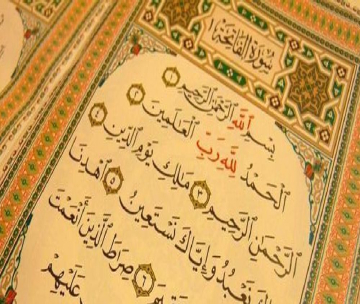 سُورَةُ ٱلْفَاتِحَةِ ١
بِسْمِ ٱللَّهِ ٱلرَّحْمَٰنِ ٱلرَّحِيمِ ١
ٱلْحَمْدُ لِلَّهِ رَبِّ ٱلْعَٰلَمِينَ ٢
ٱلرَّحْمَٰنِ ٱلرَّحِيمِ ٣ مَٰلِكِ يَوْمِ ٱلدِّينِ ٤
نَعْبُدُ وَإِيَّاكَ نَسْتَعِينُ ٥ ٱهْدِنَا
صِرَٰطَ ٱلَّذِينَ أَنْعَمْتَ
عَلَيْهِمْ